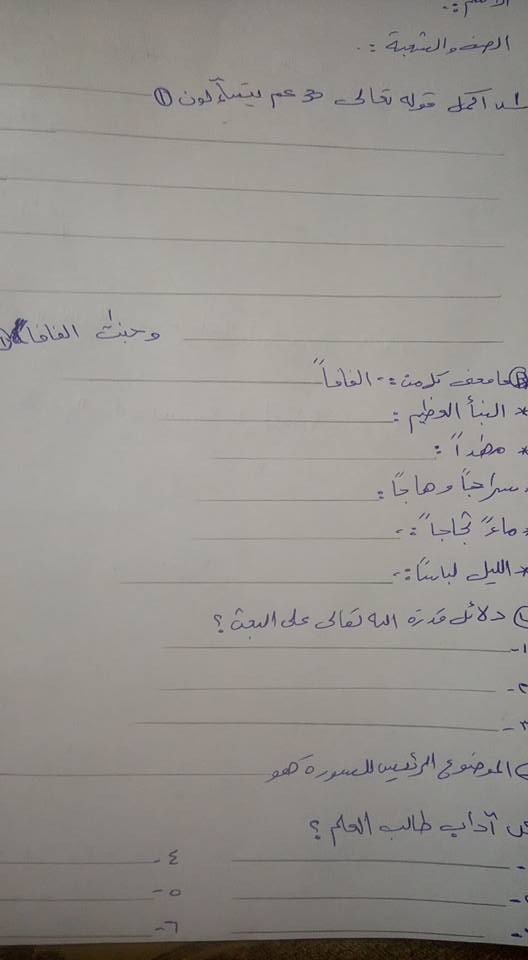 الاسم :-
الصف والشعبة :-
اكمل قوله تعالى عم يتساءلون ①
وجنات الفافا
ما معنى كلمة :- الفافاً
* النبأ العظيم :
* مهداً :
* سراجاً وهاجاً :
* ماءً ثجاجاً :-
* الليل لباساً :-
دلائل قدرة الله تعالى على البعث ؟
١-
٢-
٣-
الموضوع الرئيس للسورة هو
آداب طالب العلم ؟
٤-
٥-
٦-